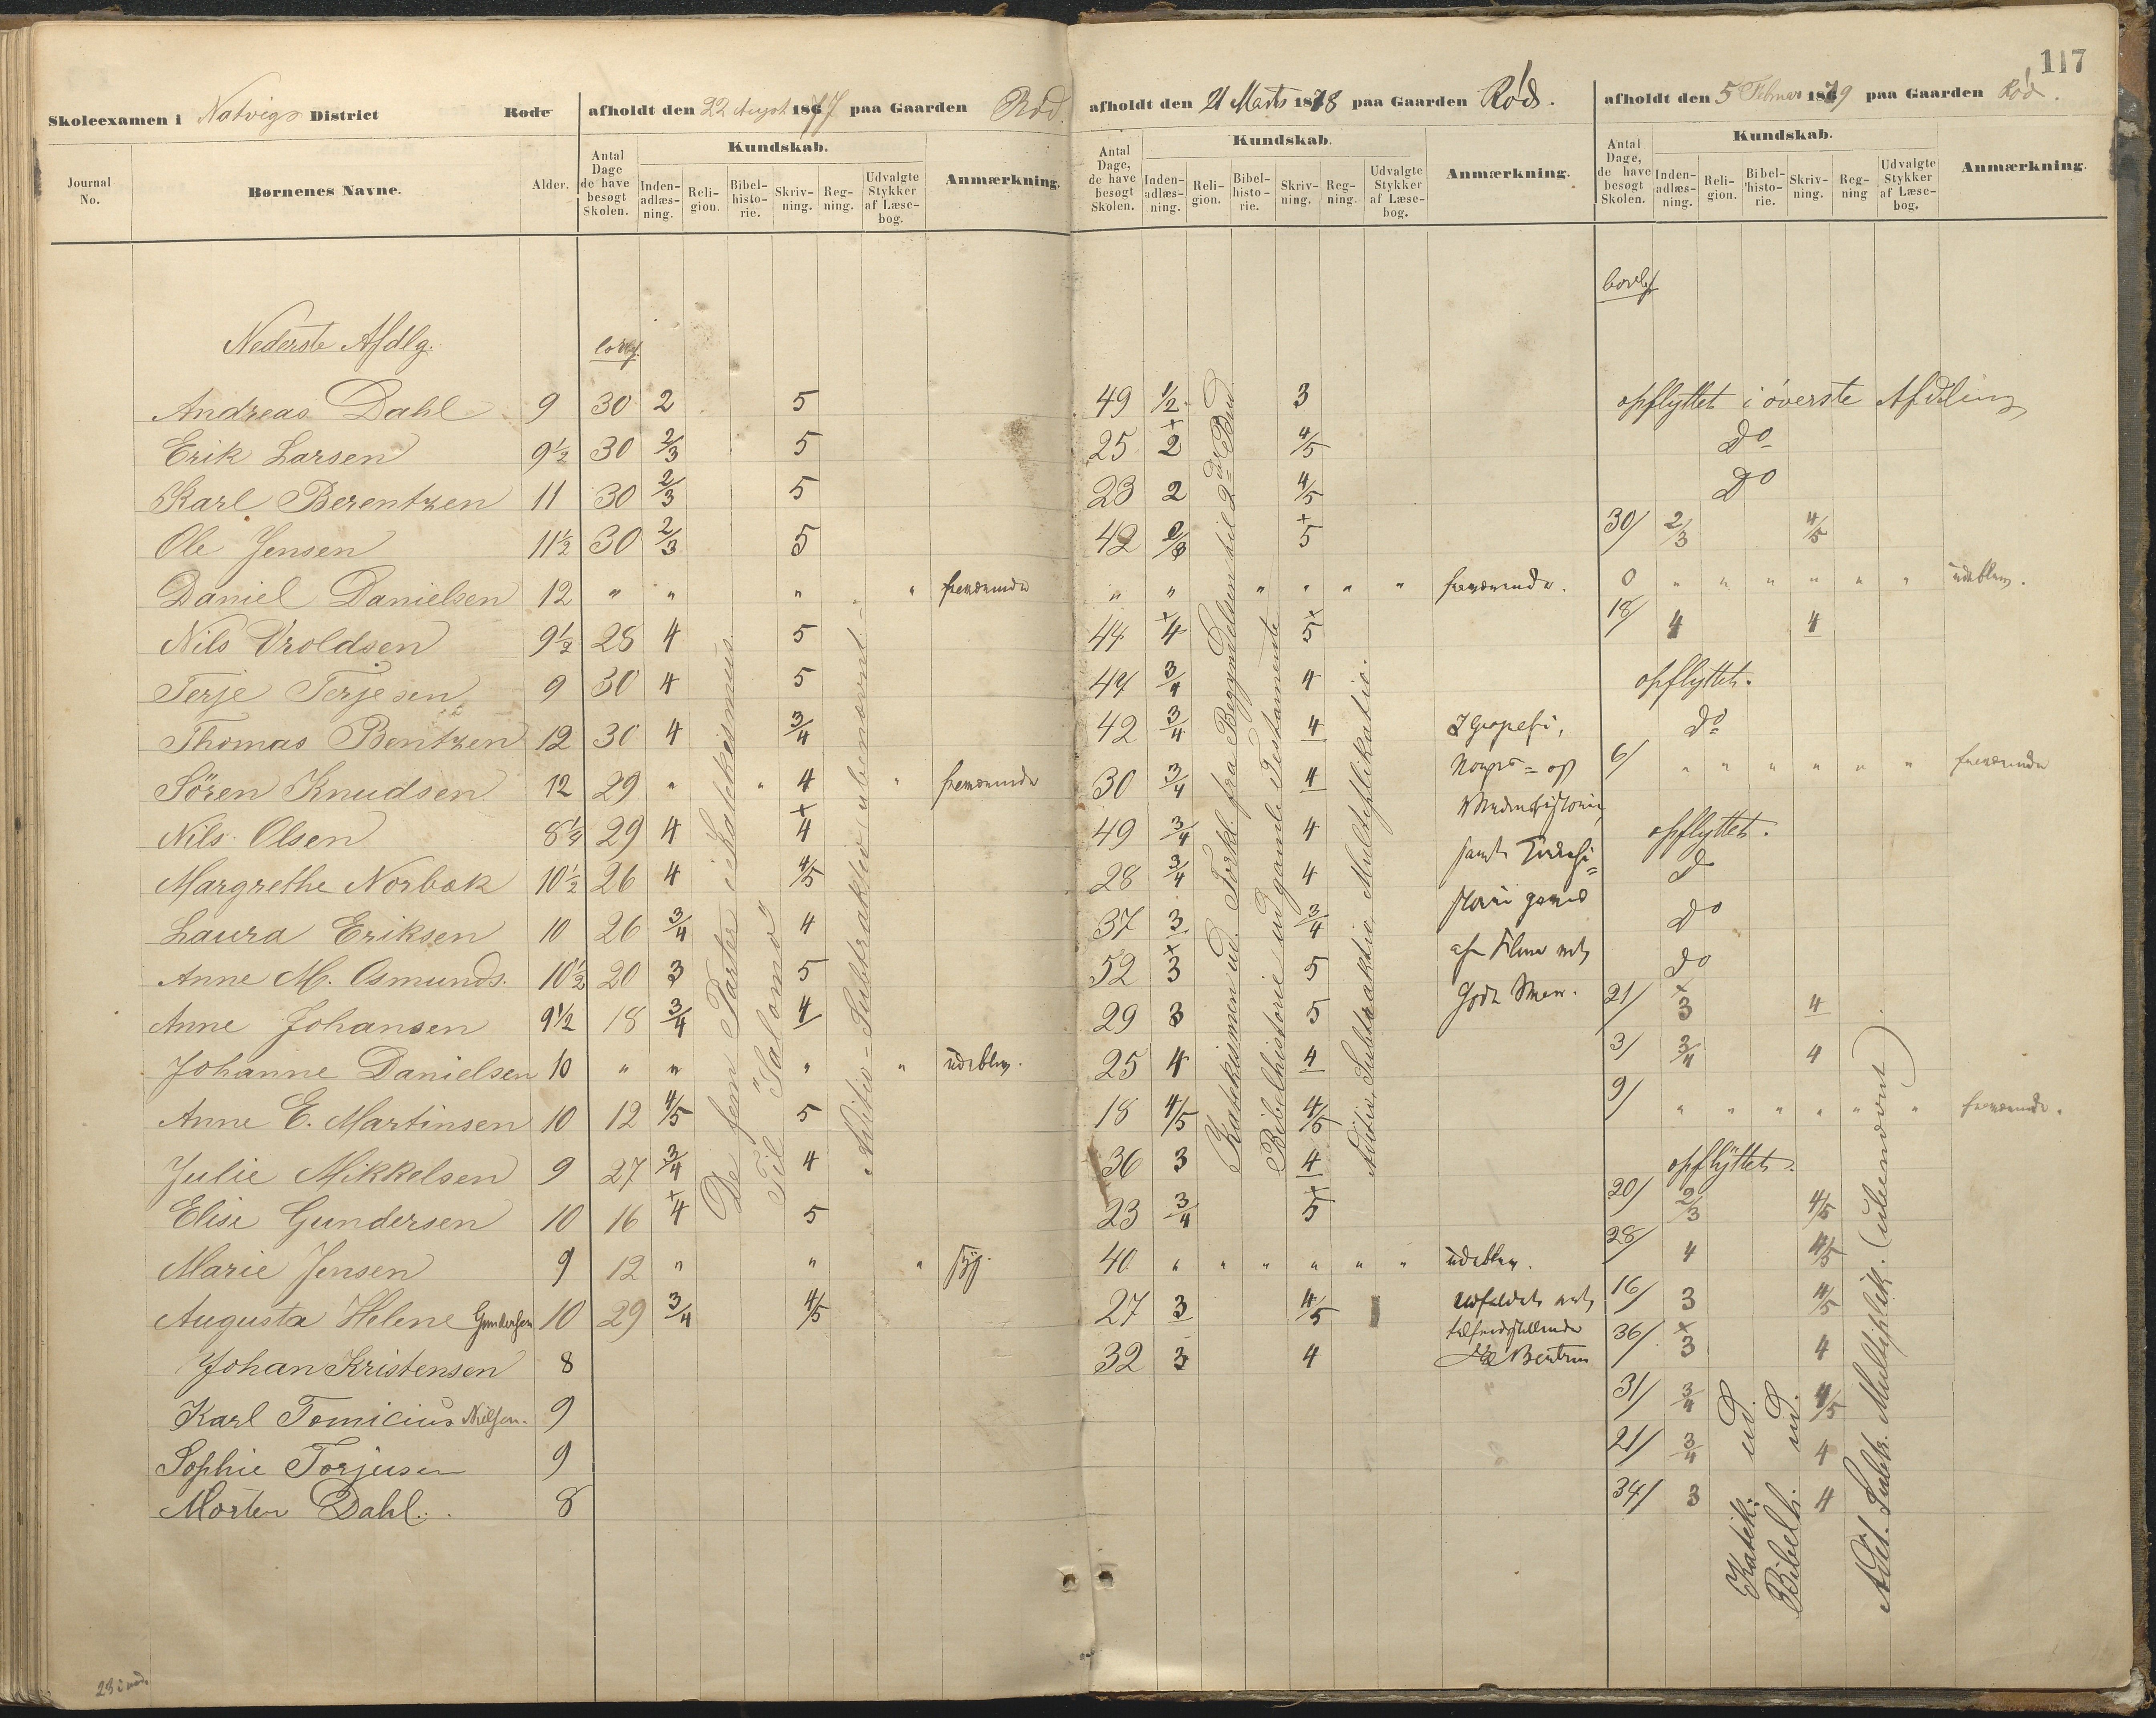 117
Skoleexamen i Natvigs District Rode afholdt den 22 August 1877 paa Gaarden Rød. afholdt den 21 Marts 1878 paa Gaarden Rød. afholdt den 5 Februar 1879 paa Gaarden Rød.
Journal No. Børnenes Navne. Alder. Antal Dage de have besøgt Skolen. Kundskab. Inden-adlæs-ning. Reli-gion. Bibel-histo-rie. Skriv-ning. Reg-ning. Udvalgte Stykker af Læse-bog. Anmærkning. Antal Dage, de have besøgt Skolen. Kundskab. Inden-adlæs-ning. Reli-gion. Bibel-histo-rie. Skriv-ning. Reg-ning. Udvalgte Stykker af Læse-bog. Anmærkning. Antal Dage, de have besøgt Skolen. Kundskab. Inden-adlæs-ning. Reli-gion. Bibel-histo-rie. Skriv-ning. Reg-ning Udvalgte Stykker af Læse-bog. Anmærkning.
Nederste Afdlg.
Andreas Dahl 9 30 2 5 49 1/2 3 opflyttet i överste Afdeling
Erik Larsen 9½ 30 2/3 5 25 +2 4/5 Do
Karl Berentzen 11 30 2/3 5 23 2 4/5 Do
Ole Jensen 11½ 30 2/3 5 42 2/3 +5 30/ 2/3 4/5
Daniel Danielsen 12 " " " " fraværende " " " " " " fraværende. 0 " " " " " " udebleven.
Nils Vroldsen 9½ 28 4 5 44 +4 +5 18/ 4 4
Terje Terjesen 9 30 4 5 44 3/4 4 opflyttet.
Thomas Bentzen 12 30 4 3/4 42 3/4 4 Do
Sören Knudsen 12 29 " " 4 " fraværende 30 3/4 4 6/ " " " " " " fraværende
Nils Olsen 8¼ 29 4 +4 49 3/4 4 opflyttet.
Margrethe Norbok 10½ 26 4 4/5 28 3/4 4 Do
Laura Eriksen 10 26 3/4 4 37 3 3/4 Do
Anne M. Osmunds. 10½ 20 3 5 52 +3 5 Do
Anne Johansen 9½ 18 3/4 4 29 3 5 21/ +3 4
Johanne Danielsen 10 " " " " udebleven. 25 4 4 3/ 3/4 4
Anne E. Martinsen 10 12 4/5 5 18 4/5 4/5 9/ " " " " " " fraværende.
Julie Mikkelsen 9 27 3/4 4 36 3 4 opflyttet.
Elise Gundersen 10 16 +4 5 23 3/4 +5 20/ 2/3 4/5
Marie Jensen 9 12 " " " syg. 40 " " " " " " udebleven. 28/ 4 4/5
Augusta Helene Gundersen 10 29 3/4 4/5 27 3 4/5 Udfaldet 16/ 3 4/5
Johan Kristensen 8 32 3 4 tilfredsstillende 36/ +3 4
Karl Tomicius Nielsen. 9 31/ 3/4 4/5
Sophie Torjusen 9 21/ 3/4 4
Morten Dahl. 8 34/ 3 4
De fem Parter i Katekismus.
Til "Salomo"
Aditio – Subtraktio ubenævnt
Katekismen ud. Forkl. fra Begyndelsen til 2det Bud
Bibelhistorie ud gamle Testamente
Aditio, Subtraktio, Multiplikatio.
Katek. ud.
Bibelh. ud.
Adit. Subtr. Multiplik. (ubenævnt)